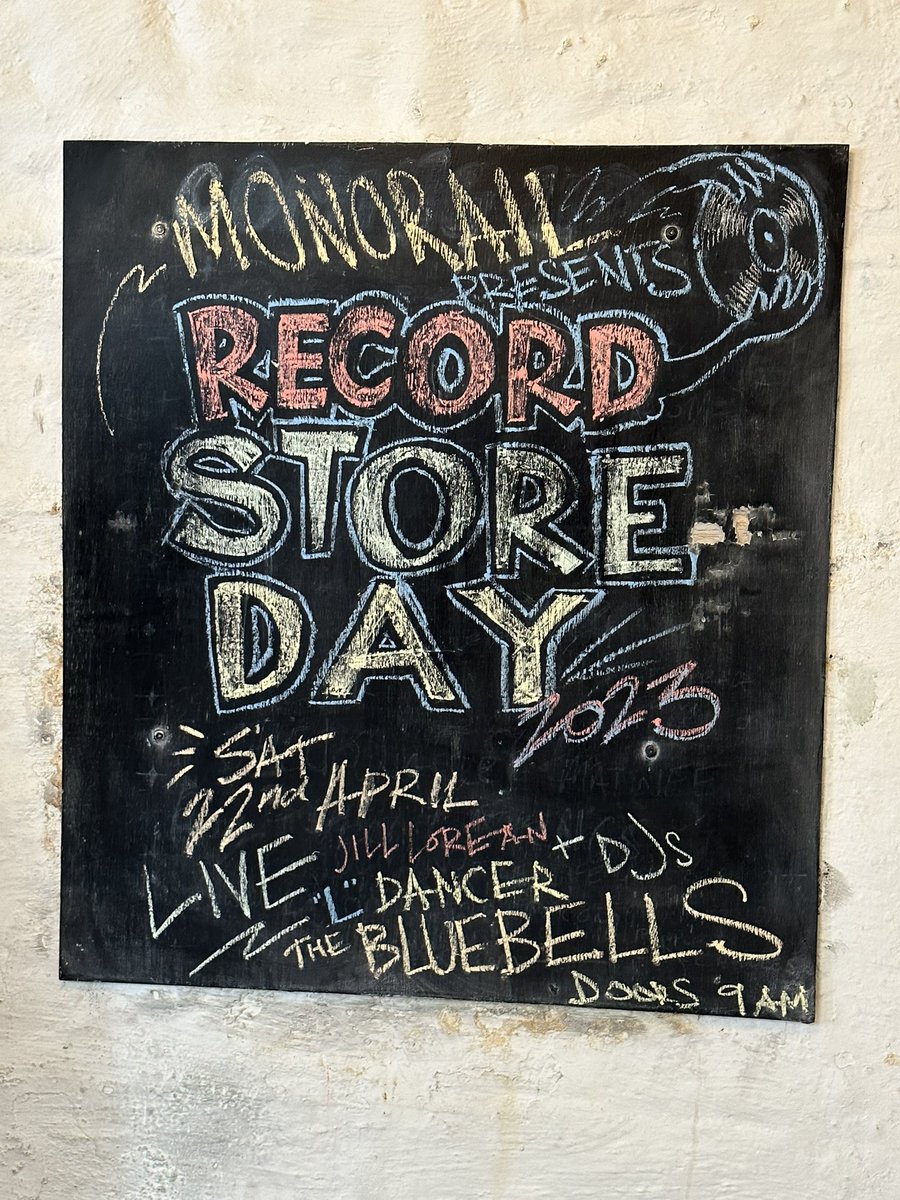 MONORAIL
PRESENTS
RECORD
STORE
DAY
2023
SAT
22nd APRIL
LIVE JILL LOREAN + DJs
"L" DANCER
THE BLUEBELLS
DOORS 9AM